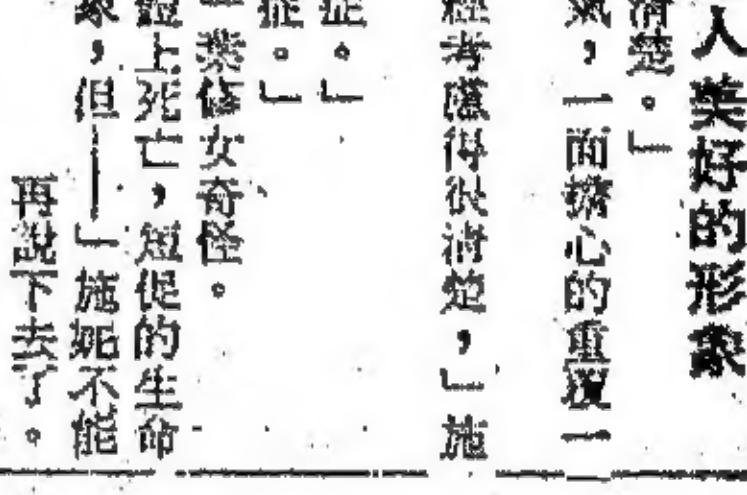 人美好的形象
清楚。」
氣，一面擔心的重覆一
經考慮得很清楚，」施
症。」
症。」
葉修女奇怪。
體上死亡，短促的生命
象，但——」施妮不能
再說下去了。